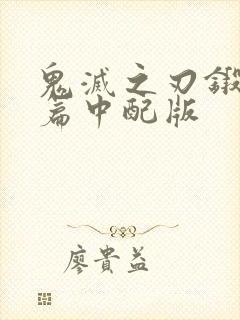 鬼滅之刃鍛
篇中配版
廖貴益